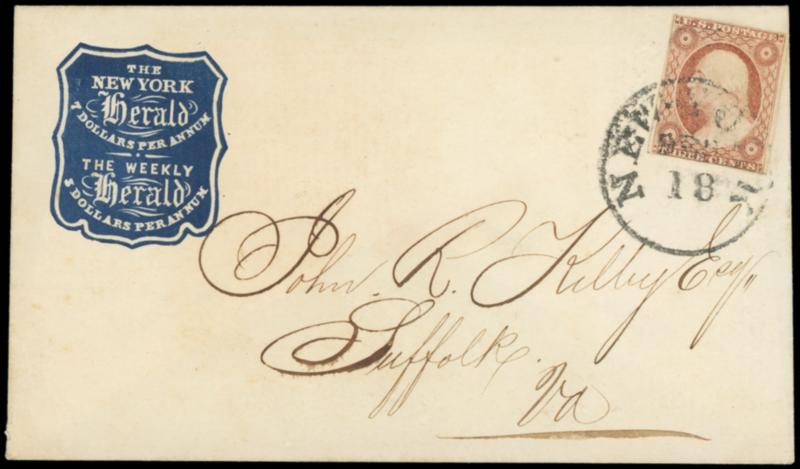 THE
NEW YORK
Herald
7 DOLLARS PER ANNUM
THE WEEKLY
Herald
3 DOLLARS PER ANNUM
U.S. POSTAGE
THREE CENTS
NEW-YO
18
John. R. Kilby Esq"
Suffolk.
Va